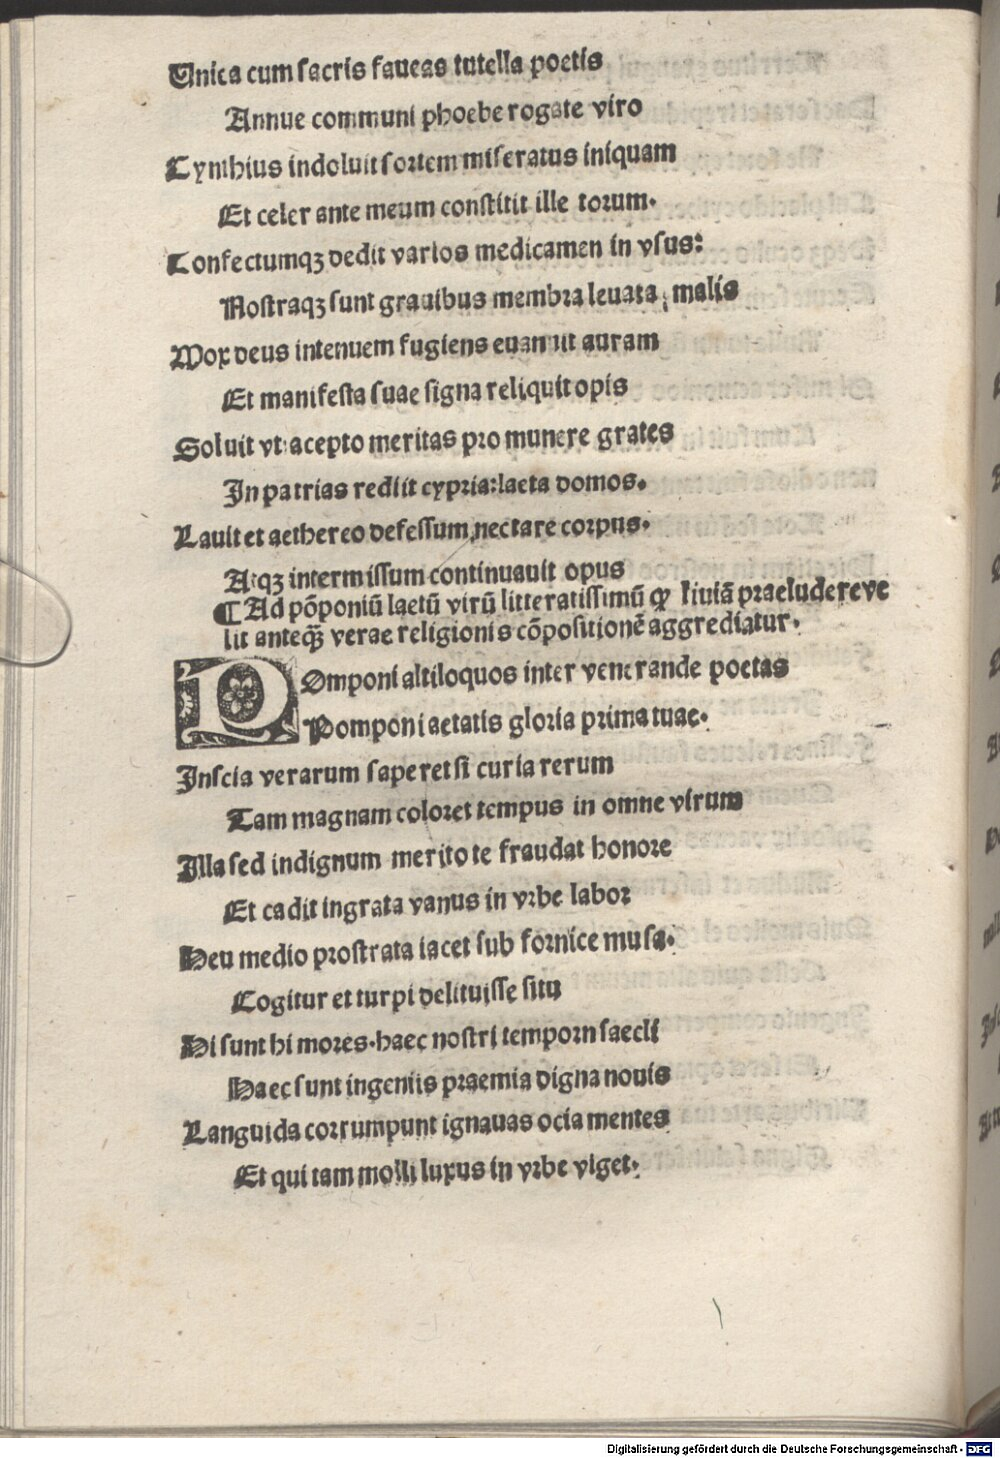 Unica cum sacris faueas tutella poetis
Annue communi phoebe rogate viro
Cynthius indoluit sortem miseratus iniquam
Et celer ante meum constitit ille torum.
Confectumqꝫ dedit varios medicamen in vsus:
Nostraqꝫ sunt grauibus membra leuata, malis
Mox deus intenuem fugiens euanuit auram
Et manifesta suae signa reliquit opis
Soluit vt acepto meritas pro munere grates
In patrias rediit cypria: laeta domos.
Lauit et aethereo defessum nectare corpus.
Atqꝫ intermissum continuauit opus
¶ Ad põponiũ laetũ virũ litteratissimũ ꝙ liuiã praeludere ve
lit anteq̃ verae religionis cõpositionẽ aggrediatur.
POmponi altiloquos inter venerande poetas
Pomponi aetatis gloria prima tuae.
Inscia verarum saperet si curia rerum
Tam magnam coloret tempus in omne virum
Illa sed indignum merito te fraudat honore
Et cadit ingrata vanus in vrbe labor
Heu medio prostrata iacet sub fornice musa.
Cogitur et turpi delituisse situ
Hi sunt hi mores. haec nostri temporn saecli
Haec sunt ingeniis praemia digna nouis
Languida corrumpunt ignauas ocia mentes
Et qui tam molli luxus in vrbe viget.
Digitalisierung gefördert durch die Deutsche Forschungsgemeinschaft - DFG